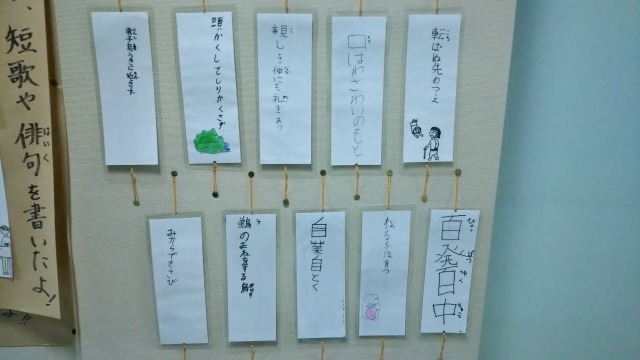 短歌や俳句を書いたよ!
はいく
転ばぬ先のつえ
口はわざわいのもと
親しき仲にも礼ぎあり
頭かくしてしりかくさず
百発百中
ねる子は育つ
自業自とく
鵜のまねをする烏
みからでたさび